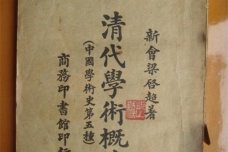 新會梁啓超著
清代學術概
(中國學術史第五種)
商務印書館印行